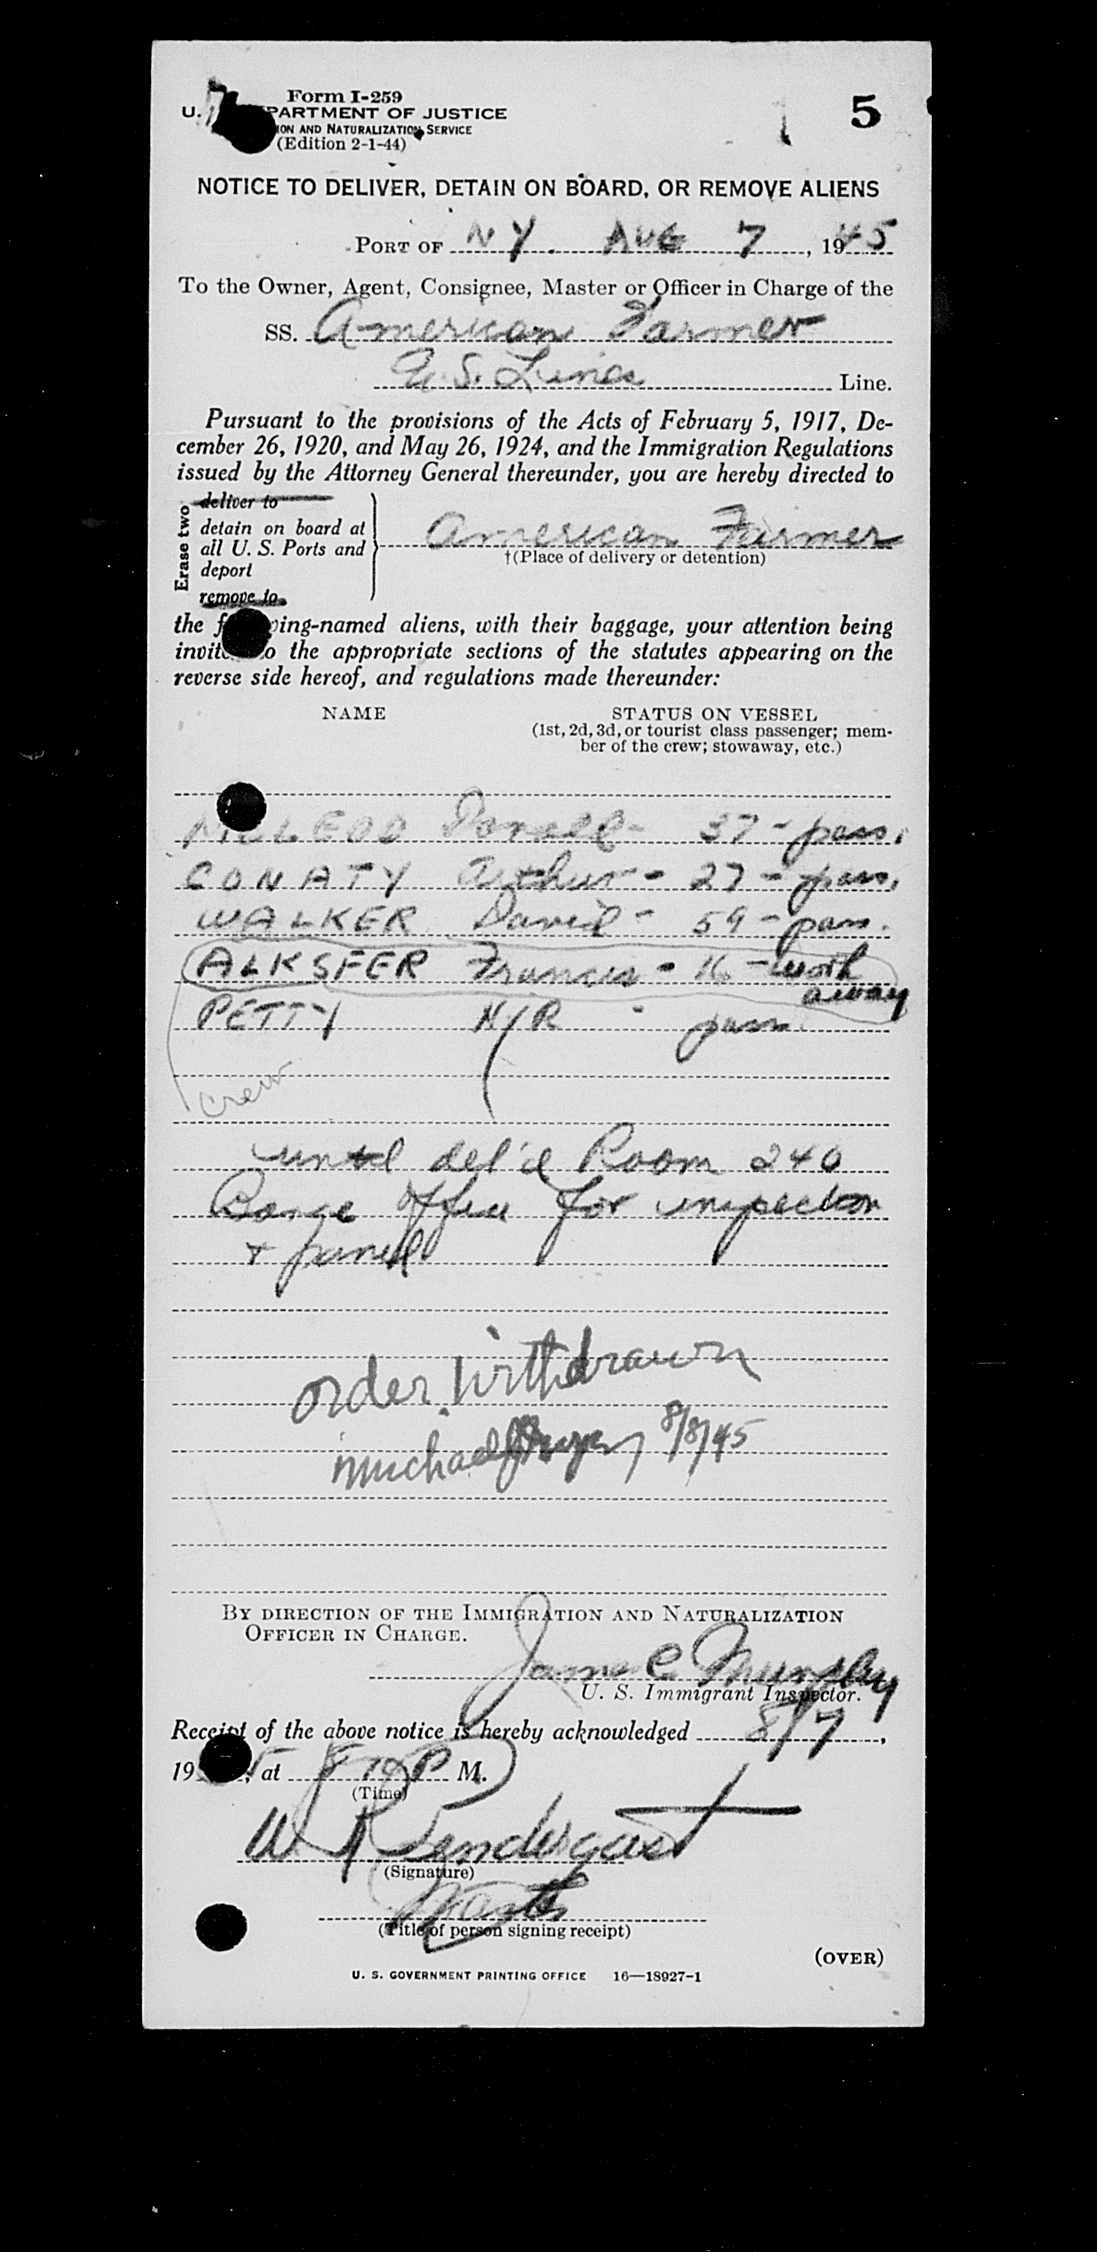 Form I-259
5
U. DEPARTMENT OF JUSTICE
ION AND NATURALIZATION SERVICE
(Edition 2-1-44)
NOTICE TO DELIVER, DETAIN ON BOARD, OR REMOVE ALIENS
PORT OF N Y. AUG 7, 1945
To the Owner, Agent, Consignee, Master or Officer in Charge of the
SS. American Farmer
U.S. Lines Line.
Pursuant to the provisions of the Acts of February 5, 1917, De-
cember 26, 1920, and May 26, 1924, and the Immigration Regulations
issued by the Attorney General thereunder, you are hereby directed to
Erase two
deliver to
detain on board at
all U. S. Ports and
deport
remove to
American Farmer
†(Place of delivery or detention)
the following-named aliens, with their baggage, your attention being
invited to the appropriate sections of the statutes appearing on the
reverse side hereof, and regulations made thereunder:
NAME
STATUS ON VESSEL
(1st, 2d, 3d, or tourist class passenger; mem-
ber of the crew; stowaway, etc.)
McLEOD Donald - 37 - pass.
CONATY Arthur - 27 - pass.
WALKER David - 59 - pass.
ALKSFER Francis - 16 - work
away
PETTY N/R - pass
crew
until del'd Room 240
Barge Office for inspection
+
order Withdrawn
Michael 8/8/45
BY DIRECTION OF THE IMMIGRATION AND NATURALIZATION
OFFICER IN CHARGE.
James C
U. S. Immigrant Inspector.
Receipt of the above notice is hereby acknowledged 8/7,
19 5, at 8 10 P M.
(Time)
W R Pendergast
(Signature)
(Title of person signing receipt)
(OVER)
U. S. GOVERNMENT PRINTING OFFICE 16—18927-1